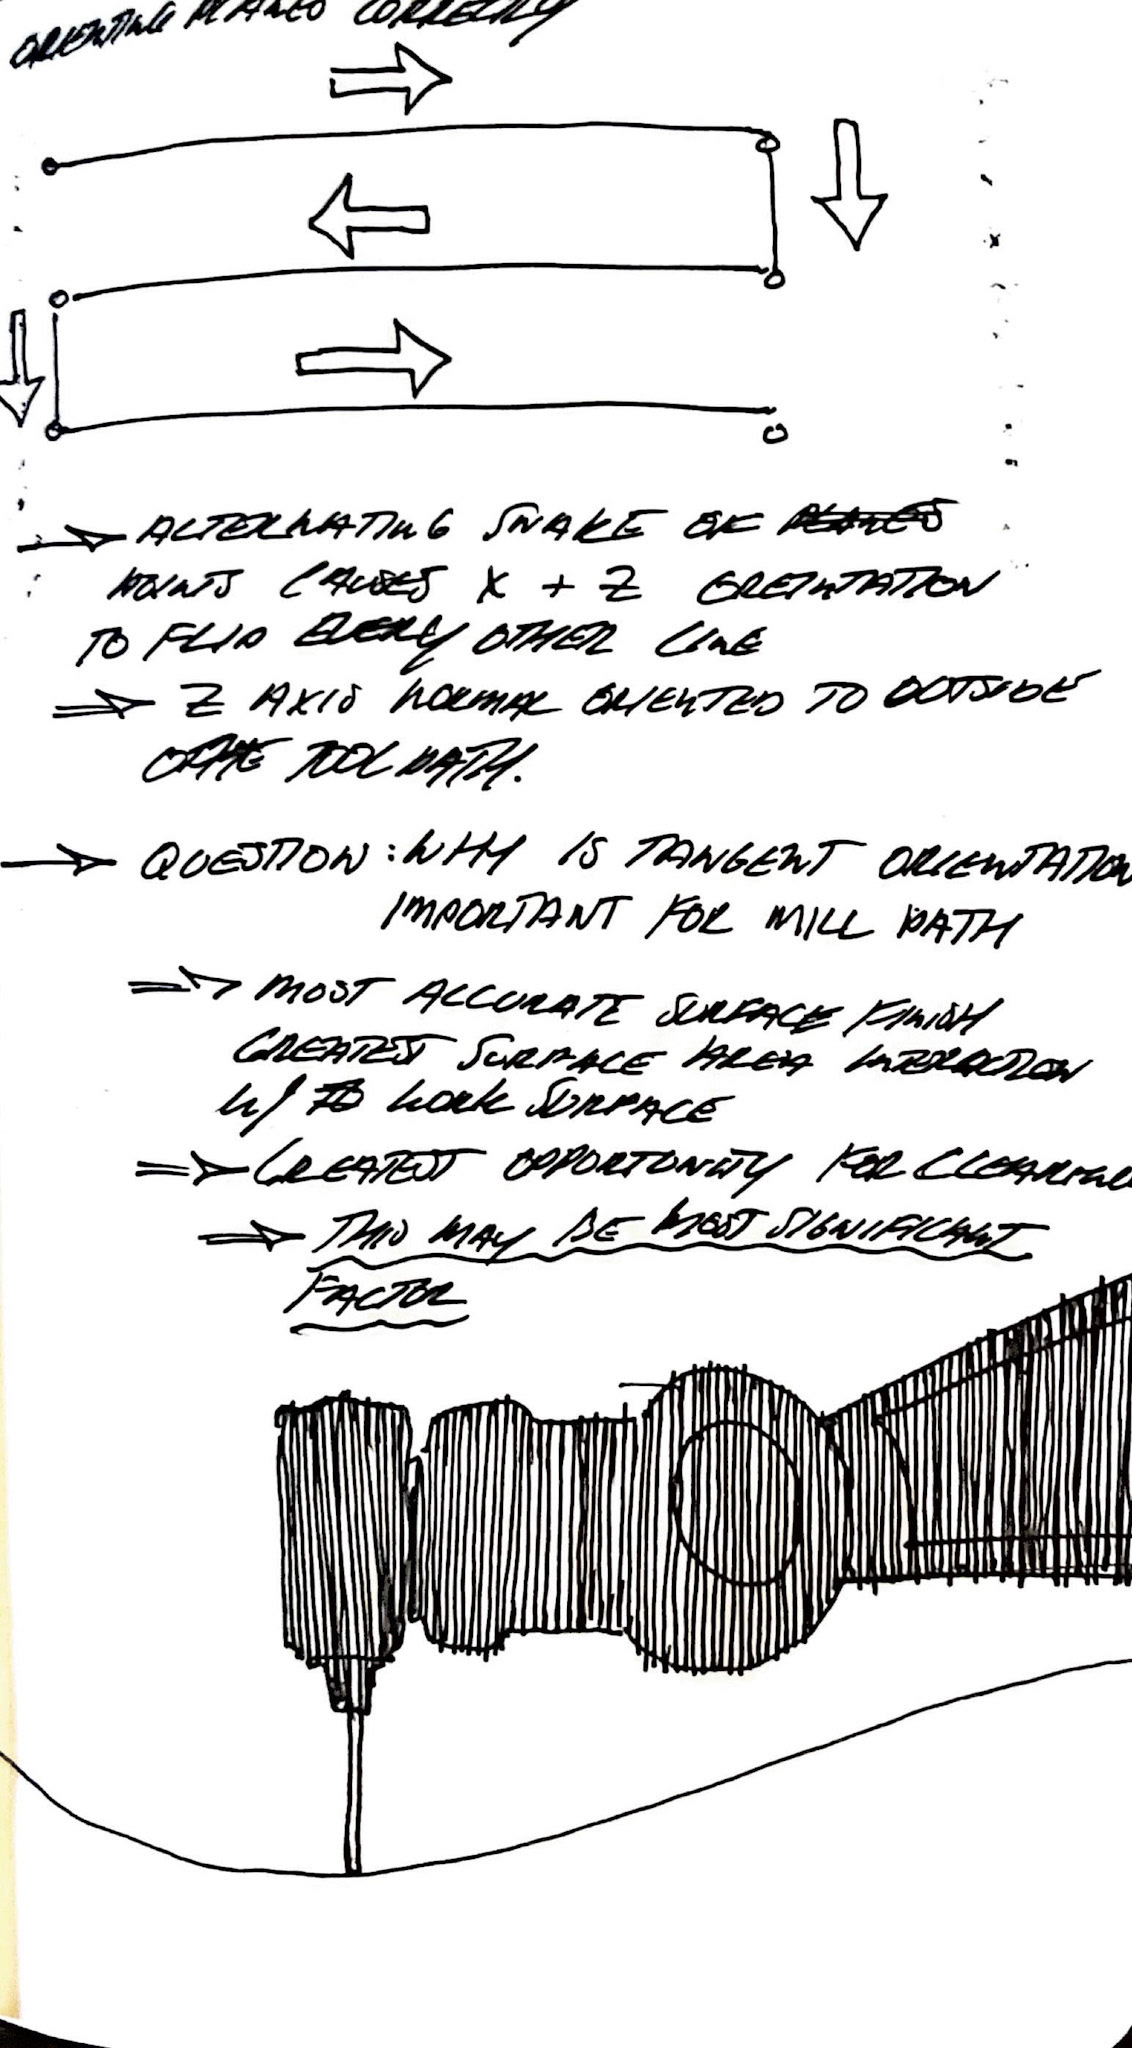 ORIENTING PLANES CORRECTLY
ALTERNATING SNAKE OF PLANES
POINTS CAUSES X + Z ORIENTATION
TO FLIP EVERY OTHER LINE
Z AXIS NORMAL ORIENTED TO OUTSIDE
OF THE TOOL PATH.
QUESTION: WHY IS TANGENT ORIENTATION
IMPORTANT FOR MILL PATH
MOST ACCURATE SURFACE FINISH
GREATEST SURFACE AREA INTERACTION
W/ WORK SURFACE
GREATEST OPPORTUNITY FOR
THIS MAY BE MOST SIGNIFICANT
FACTOR